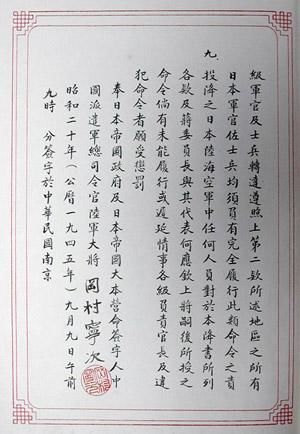 級軍官及士兵轉達遵照上第二款所述地區之所有
日本軍官佐士兵均須負有完全履行此類命令之責
九、
投降之日本陸海空軍中任何人員對於本降書所列
各款及蔣委員長與其代表何應欽上將嗣後所授之
命令倘有未能履行或遲延情事各級負責官長及違
犯命令者願受懲罰
奉日本帝國政府及日本帝國大本營命簽字人中
國派遣軍總司令官陸軍大將 岡村寧次
昭和二十年(公曆一九四五年)九月九日午前
九時 分簽字於中華民國南京